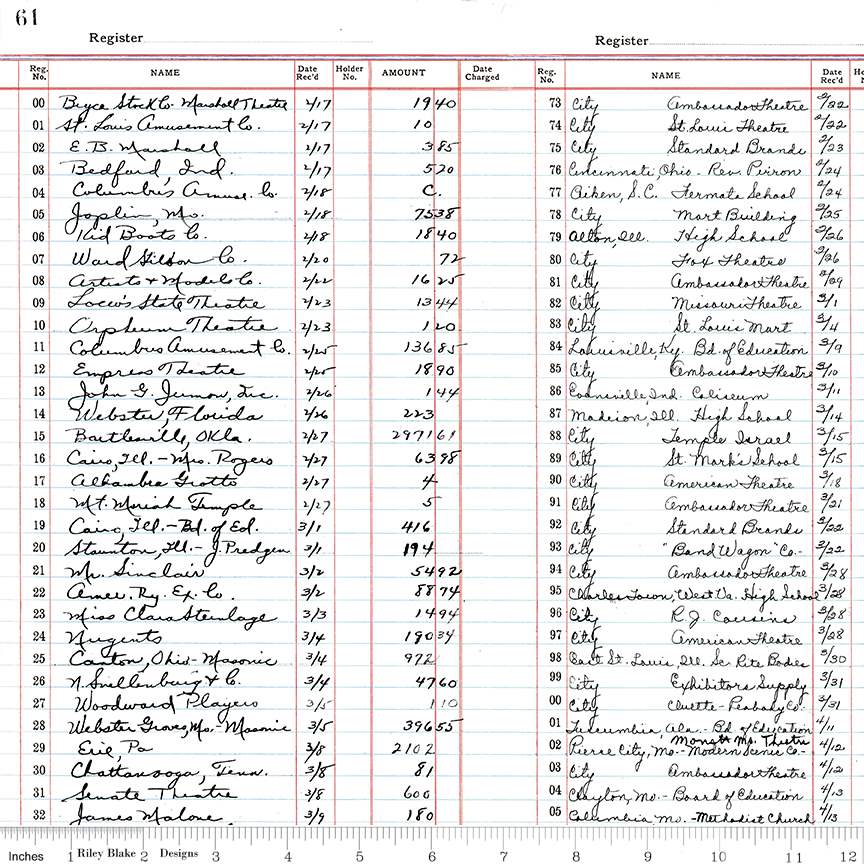 61
Register
Reg. No. NAME Date Rec'd Holder No. AMOUNT Date Charged
00 Bryce Stock Co. Marshall Theatre 2/17 19 40
01 St. Louis Amusement Co. 2/17 10
02 E.B. Marshall 2/17 3 85
03 Bedford, Ind. 2/17 5 20
04 Columbus Amuse. Co. 2/18 C.
05 Joplin, Mo. 2/18 75 38
06 Kid Boots Co. 2/18 18 40
07 Ward Co. 2/20 72
08 Artists & Models Co. 2/22 16 25
09 Loew's State Theatre 2/23 13 44
10 Orpheum Theatre 2/23 1 20
11 Columbus Amusement Co. 2/25 136 85
12 Empress Theatre 2/25 18 90
13 John G. Inc. 2/26 1 44
14 Webster, Florida 2/26 223
15 Bartlesville, Okla. 2/27 2971 61
16 Cairo, Ill. - Mrs. Rogers 2/27 63 98
17 Alhambra Grotto 2/27 4
18 Mt. Moriah Temple 2/27 5
19 Cairo, Ill. - Bd. of Ed. 3/1 416
20 Staunton, Ill. - J. Predgen 3/1 194
21 Mr. Sinclair 3/2 54 92
22 Amer. Ry. Ex. Co. 3/2 88 74
23 Miss Clara Steinlage 3/3 14 94
24 Nugents 3/4 190 34
25 Canton, Ohio - Masonic 3/4 972
26 N. Snellenburg & Co. 3/4 47 60
27 Woodward Players 3/5 1 10
28 Webster Groves, Mo. - Masonic 3/5 396 55
29 Erie, Pa 3/8 2102
30 Chattanooga, Tenn. 3/8 81
31 Senate Theatre 3/8 600
32 James Malone 3/9 180
Register
Reg. No. NAME Date Rec'd
73 City Ambassador Theatre 2/22
74 City St. Louis Theatre 2/22
75 City Standard Brands 2/23
76 Cincinnati, Ohio - Rev. 2/24
77 Aiken, S.C. Fermata School 2/24
78 City Mart Building 2/25
79 Alton, Ill. High School 2/26
80 City Fox Theatre 2/26
81 City Ambassador Theatre 2/29
82 City Missouri Theatre 3/1
83 City St. Louis Mart 3/4
84 Louisville, Ky. Bd. of Education 3/9
85 City Ambassador Theatre 3/10
86 Evansville, Ind. Coliseum 3/11
87 Madison, Ill. High School 3/14
88 City Temple Israel 3/15
89 City St. Mark's School 3/15
90 City American Theatre 3/18
91 City Ambassador Theatre 3/21
92 City Standard Brands 3/22
93 City "Band Wagon" Co. - 3/22
94 City Ambassador Theatre 3/28
95 Charles Town, West Va. High School 3/28
96 City R.J. Cousins 3/28
97 City American Theatre 3/28
98 East St. Louis, Ill. Sc. Rite Bodies 3/30
99 City Exhibitors Supply 3/31
00 City Cluette-Peabody Co. 3/31
01 Tuscumbia, Ala. - Bd. of Education 4/11
Monett Mo. Theatre
02 Pierce City, Mo. - Modern Scenic Co. - 4/12
03 City Ambassador Theatre 4/12
04 Clayton, Mo. - Board of Education 4/13
05 Columbia Mo. - Methodist Church 4/13
Inches 1 Riley Blake 2 Designs 3 4 5 6 7 8 9 10 11 12